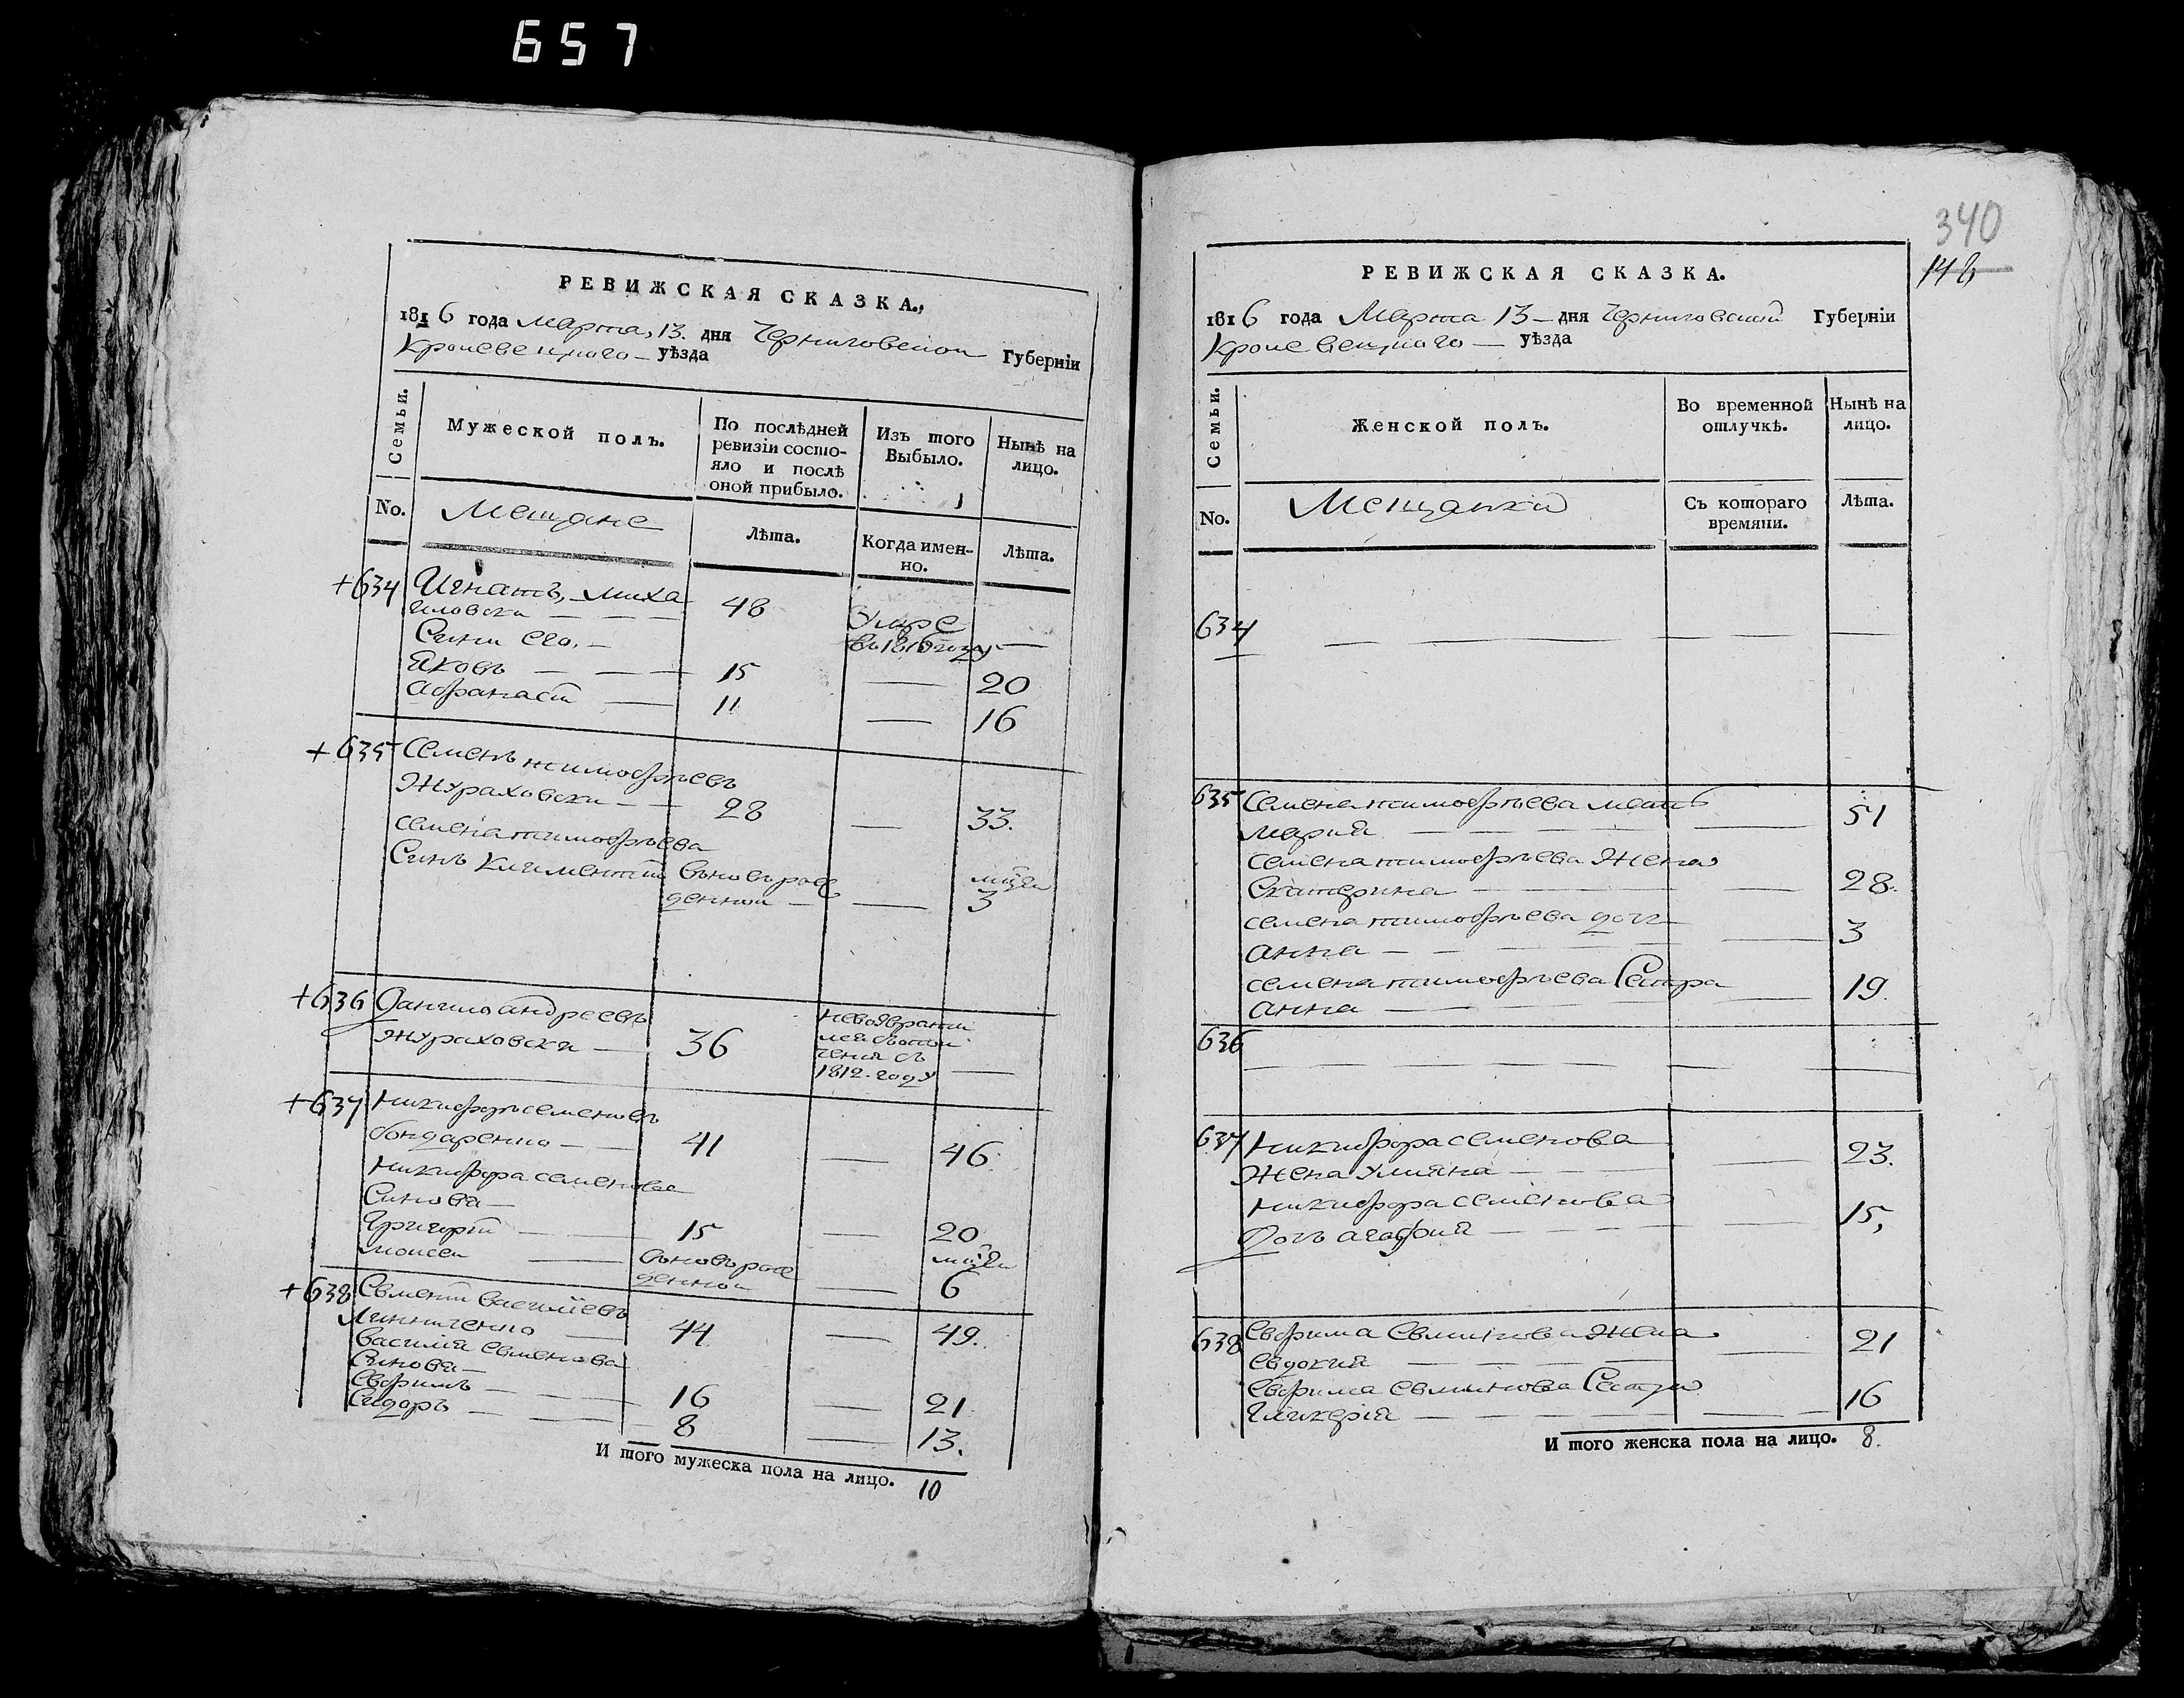 657
РЕВИЖСКАЯ СКАЗКА.
1816 года Марта, 13. дня Черниговской Губерніи
Кролевецкого — уѣзда
Семьи.
Мужеской полъ.
По послѣдней ревизіи состояло и послѣ оной прибыло.
Изъ того Выбыло.
Нынѣ на лицо.
No.
Мещане
Лѣта.
Когда именно.
Лѣта.
+634 Игнатъ, миха
иловски — — — 48 Умре
Сини его. — въ 1816 году —
Яковъ — — — 15 — 20
Афанасій — 11 — 16
+635 Семенъ тимофѣевъ
Жураховски — — 28 — 33.
семена тимофѣева
Синъ Климентій вновь рож мцъ
денной — — 3
+636 Данило андреевъ
жураховски — 36
1812. году —
+637 Никифоръ семеновъ
бондаренко — — 41 — 46.
Никифора семенова
Синовя —
Григорій — — 15 — 20
моисеи — вновь рож мцъ
денной — 6
+638 Евменій василіевъ
Линниченко — 44 — 49.
василія евменова
Синовя —
Евфимъ — — 16 — 21
Сидоръ — — 8 — 13.
И того мужеска пола на лицо. 10
340
РЕВИЖСКАЯ СКАЗКА.
1816 года Марта 13 — дня Черниговской Губерніи
Кролевецкого — уѣзда
Семьи.
Женской полъ.
Во временной отлучкѣ.
Нынѣ на лицо.
No.
Мещанки
Съ котораго времяни.
Лѣта.
634 — — — — — —
635 Семена тимофѣева мать
Марія — — — — — 51
семена тимофѣева Жена
Екатерина — — — 28.
семена тимофѣева доч
анна — — — — 3
семена тимофѣева Сестра
анна — — — — 19.
636
— — — — — —
637 Никифора семенова
Жена Улияна — — — 23.
Никифора семенова
Дочъ агафия — — — 15,
638 Евфима Евминова Жена
евдокия — — — — — 21
Евфима евминова Сестра
Гликерія — — — — — 16
И того женска пола на лицо. 8.